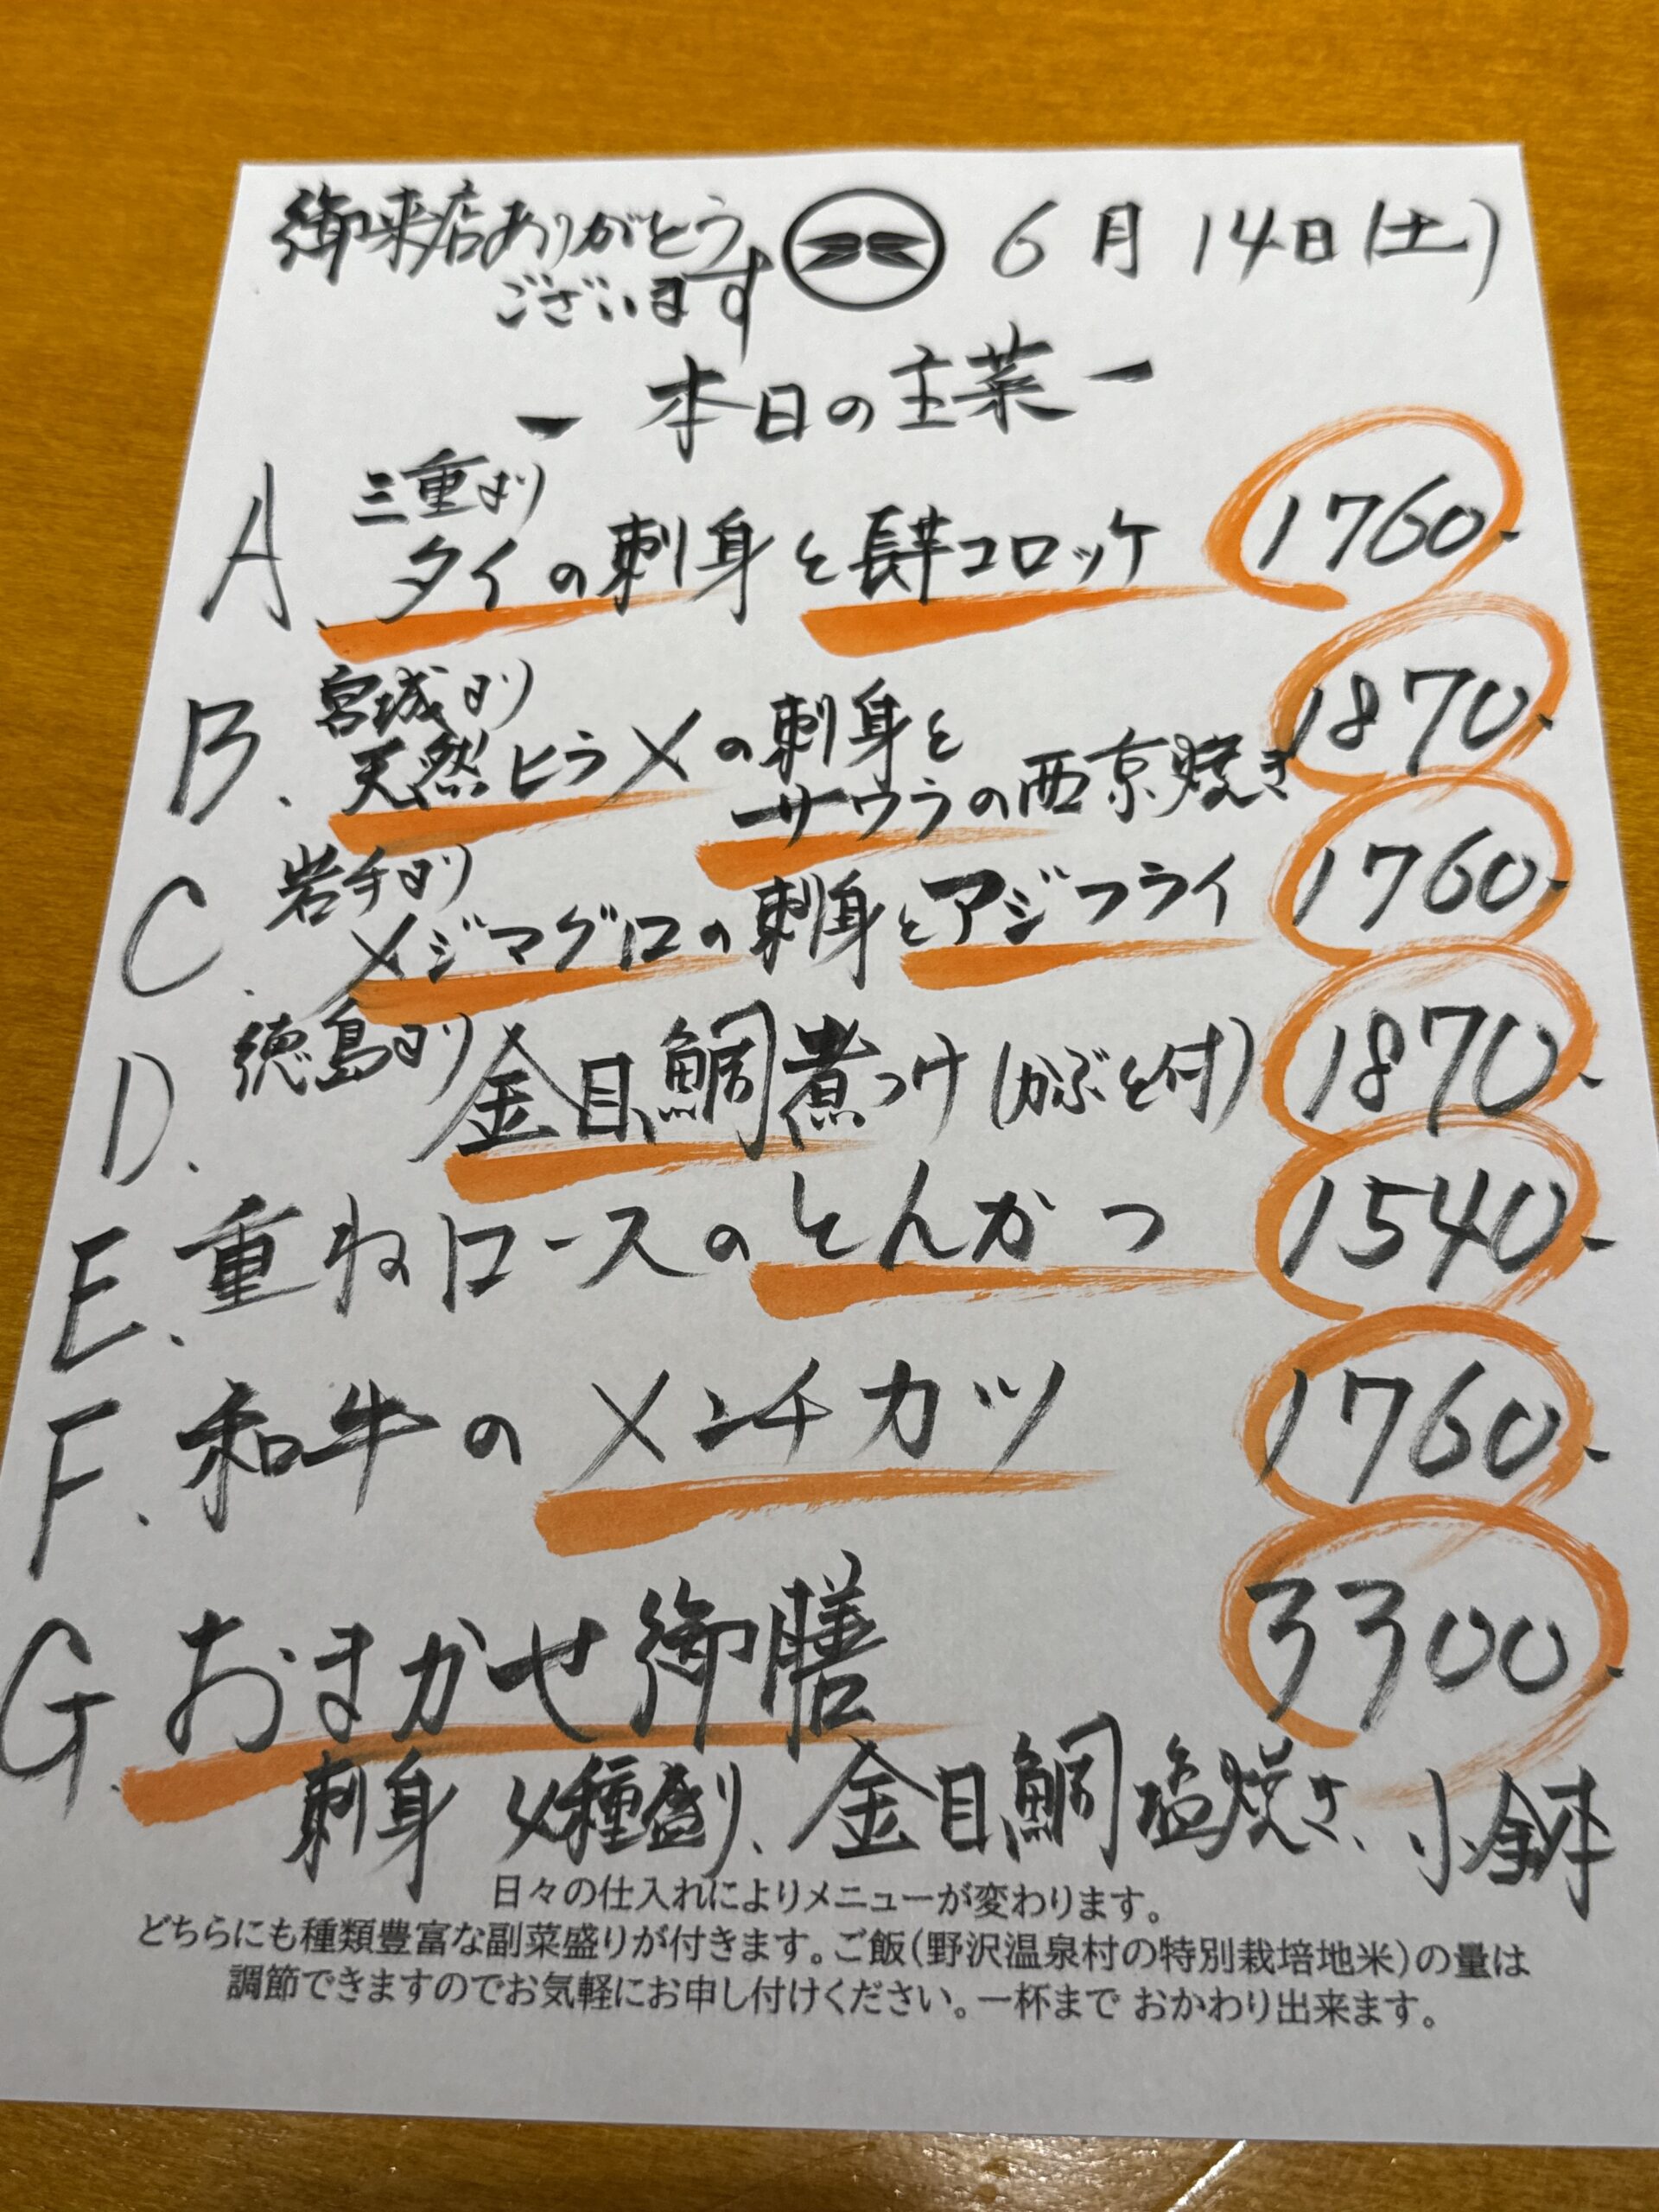 御来店ありがとう
ございます
6月14日(土)
ー本日の主菜ー
A、三重より
タイの刺身と長芋コロッケ 1760-
B、宮城より
天然ヒラメの刺身と
サワラの西京焼き 1870-
C、岩手より
メジマグロの刺身とアジフライ 1760-
D、徳島より
金目鯛煮つけ(かぶと付) 1870-
E、重ねロースのとんかつ 1540-
F、和牛のメンチカツ 1760-
G、おまかせ御膳 3300-
刺身4種盛り、金目鯛塩焼き、小鉢
日々の仕入れによりメニューが変わります。
どちらにも種類豊富な副菜盛りが付きます。ご飯(野沢温泉村の特別栽培地米)の量は
調節できますのでお気軽にお申し付けください。一杯まで おかわり出来ます。